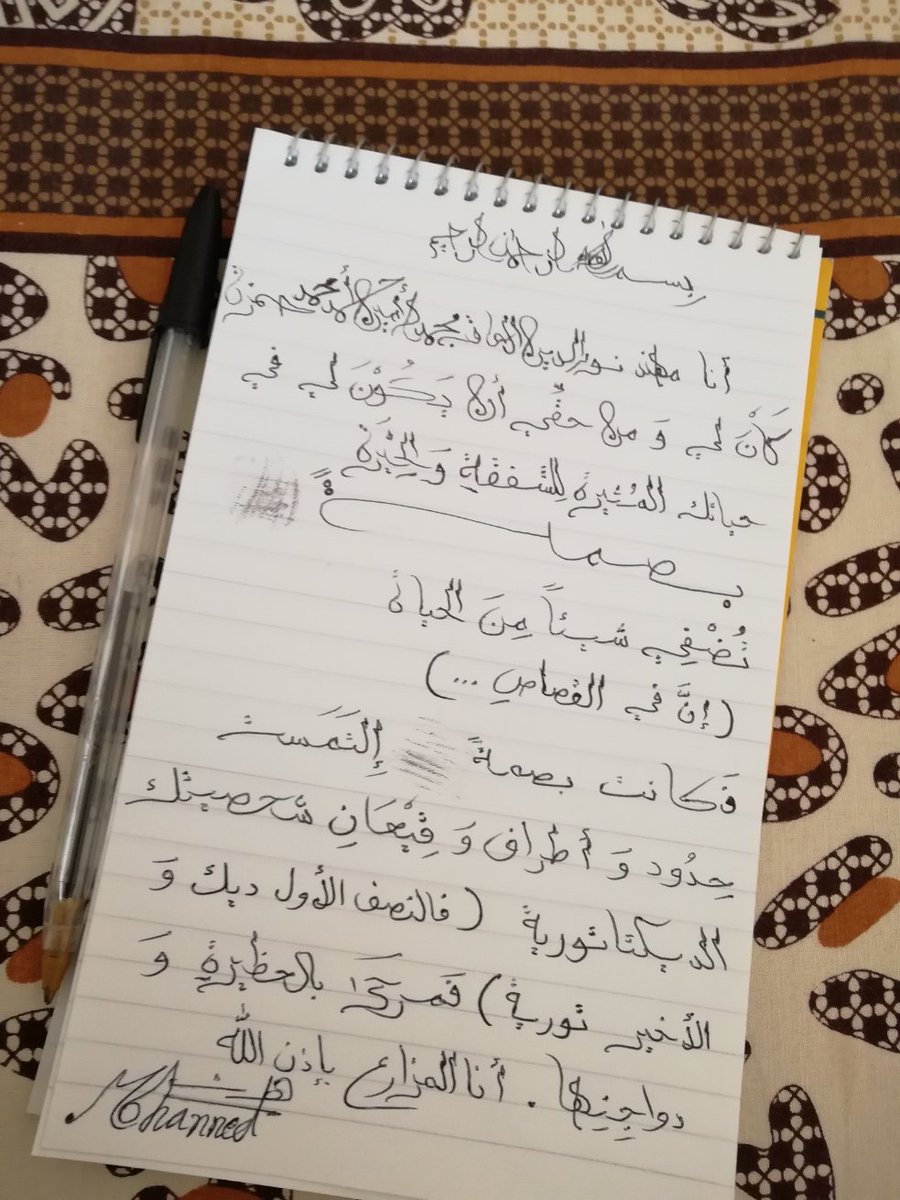 بسم الله الرحمن الرحيم
أنا مهند نور الدين محمد الأمين أحمد محمد حمزة
كَانَ لي وَ من حقِّي أن يَكُوْنَ لي في
حياتك المُثيرةِ للشفقةِ وَ الحِيَرَةِ
بصمـــةٌ
تُضْفِي شيئاً مِنَ الحياةِ
(إنَّ في القصاصِ ...)
فَكانت بصمةً إلتَمَست
حِدُود وَ أطراف وَ قِيْعَانِ شخصيتك
الديكتاتوريةِ (فالنصف الأول ديك وَ
الأخير ثوريةٌ) فَمرحَى بالحظيرةِ وَ
دواجِنِها . أنا المزارع بإذن الله
Mhanned